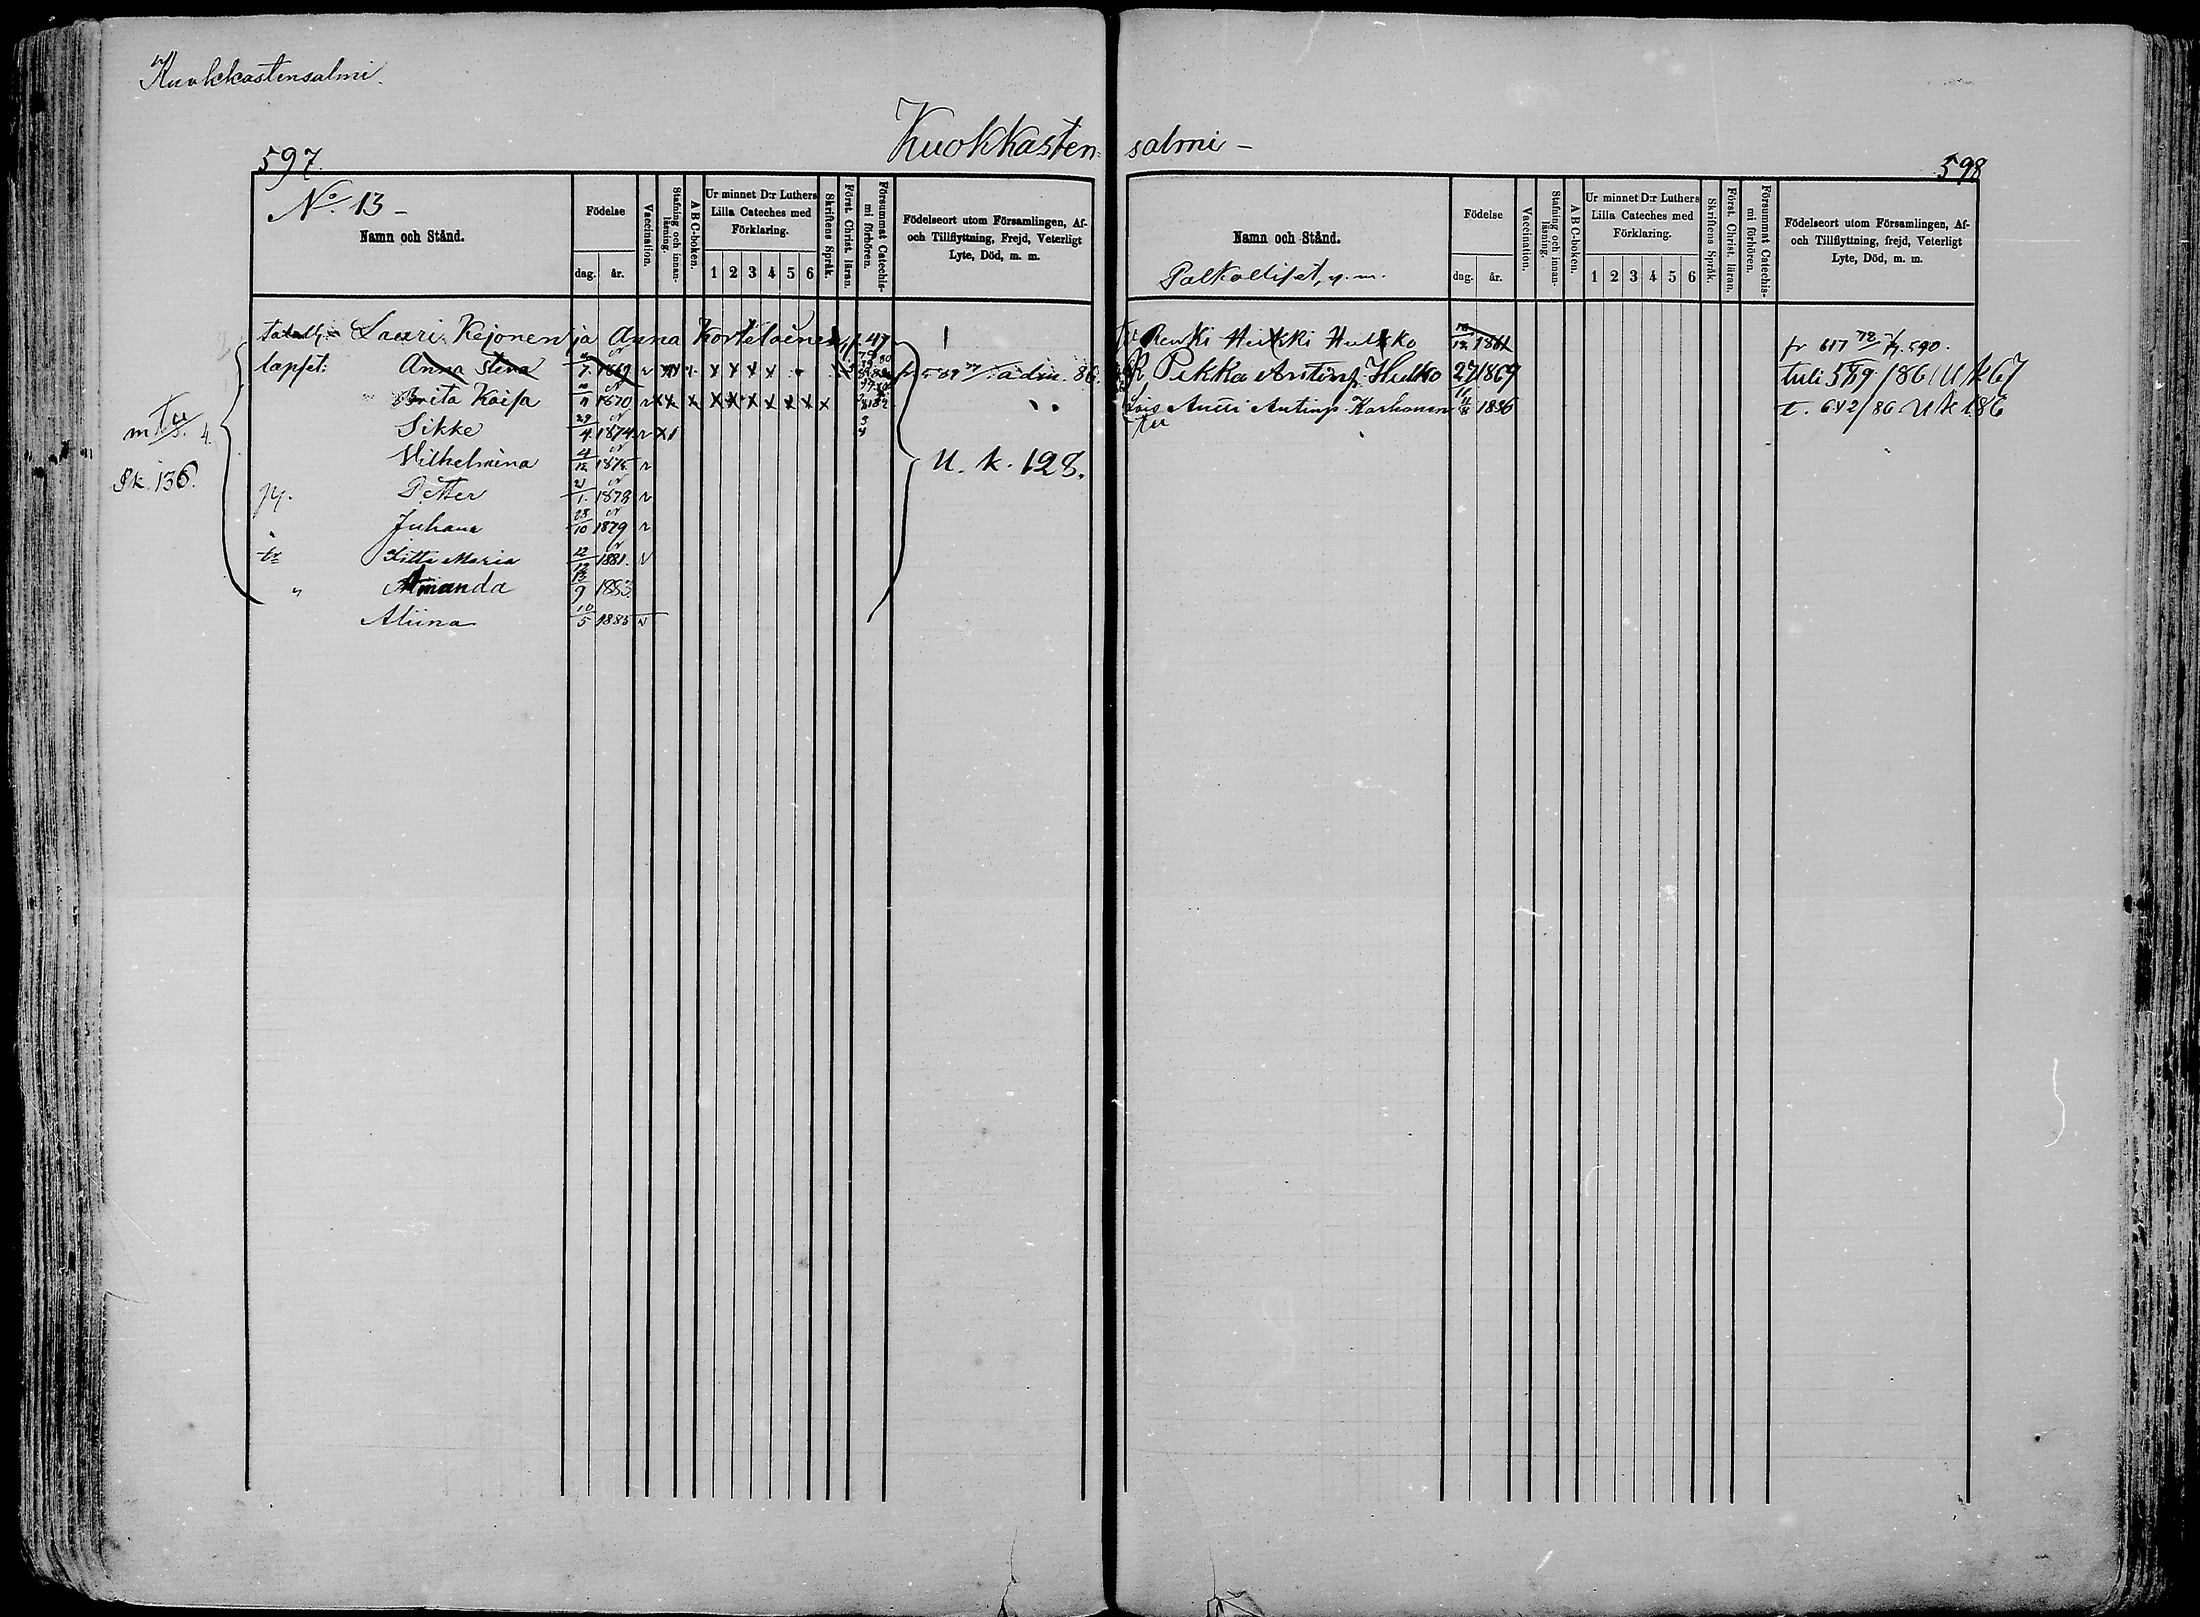 Kuokkastensalmi.
Kuokkasten salmi -
597.
598
No. 13 -
Namn och Stånd.
Födelse
dag. år.
Vaccination.
Stafning och innan-läsning.
A B C-boken.
Ur minnet D:r Luthers Lilla Cateches med Förklaring.
1 2 3 4 5 6
Skriftens Språk.
Först. Christ. läran.
Försummat Catechis-mi förhören.
Födelseort utom Församlingen, Af- och Tillflyttning, Frejd, Veterligt Lyte, Död, m. m.
Lauri Kejonen ja Anna Kortelainen 47
lapset: Anna Stina 7. 1869 v x x x x 86.
Brita Kaisa 11 1870 v x x x x x x x x x
Sikke 29/4 1874 v x
Vilhelmina 4/12 1875 v
U. k. 128.
Sk. 136.
Petter 21/1. 1878 v
Juhana 28/10 1879 v
Titta Maria 12/12 1881. v
" Amanda 13/9 1883
Aliina 10/5 1885 v
Namn och Stånd.
Palkolliset, y. m.
Födelse
dag. år.
Vaccination.
Stafning och innan-läsning.
A B C-boken.
Ur minnet D:r Luthers Lilla Cateches med Förklaring.
1 2 3 4 5 6
Skriftens Språk.
Först. Christ. läran.
Försummat Catechis-mi förhören.
Födelseort utom Församlingen, Af- och Tillflyttning, frejd, Veterligt Lyte, Död, m. m.
Renki Heikki Hulkko 12 1861 fr 617 78/79. 590.
R Pekka Antinp. Hulkko 27/11 1869 tuli 559/86 / U k 67
Antti Antinp Korhonen 11/8 1836 t. 642/86 U k 186